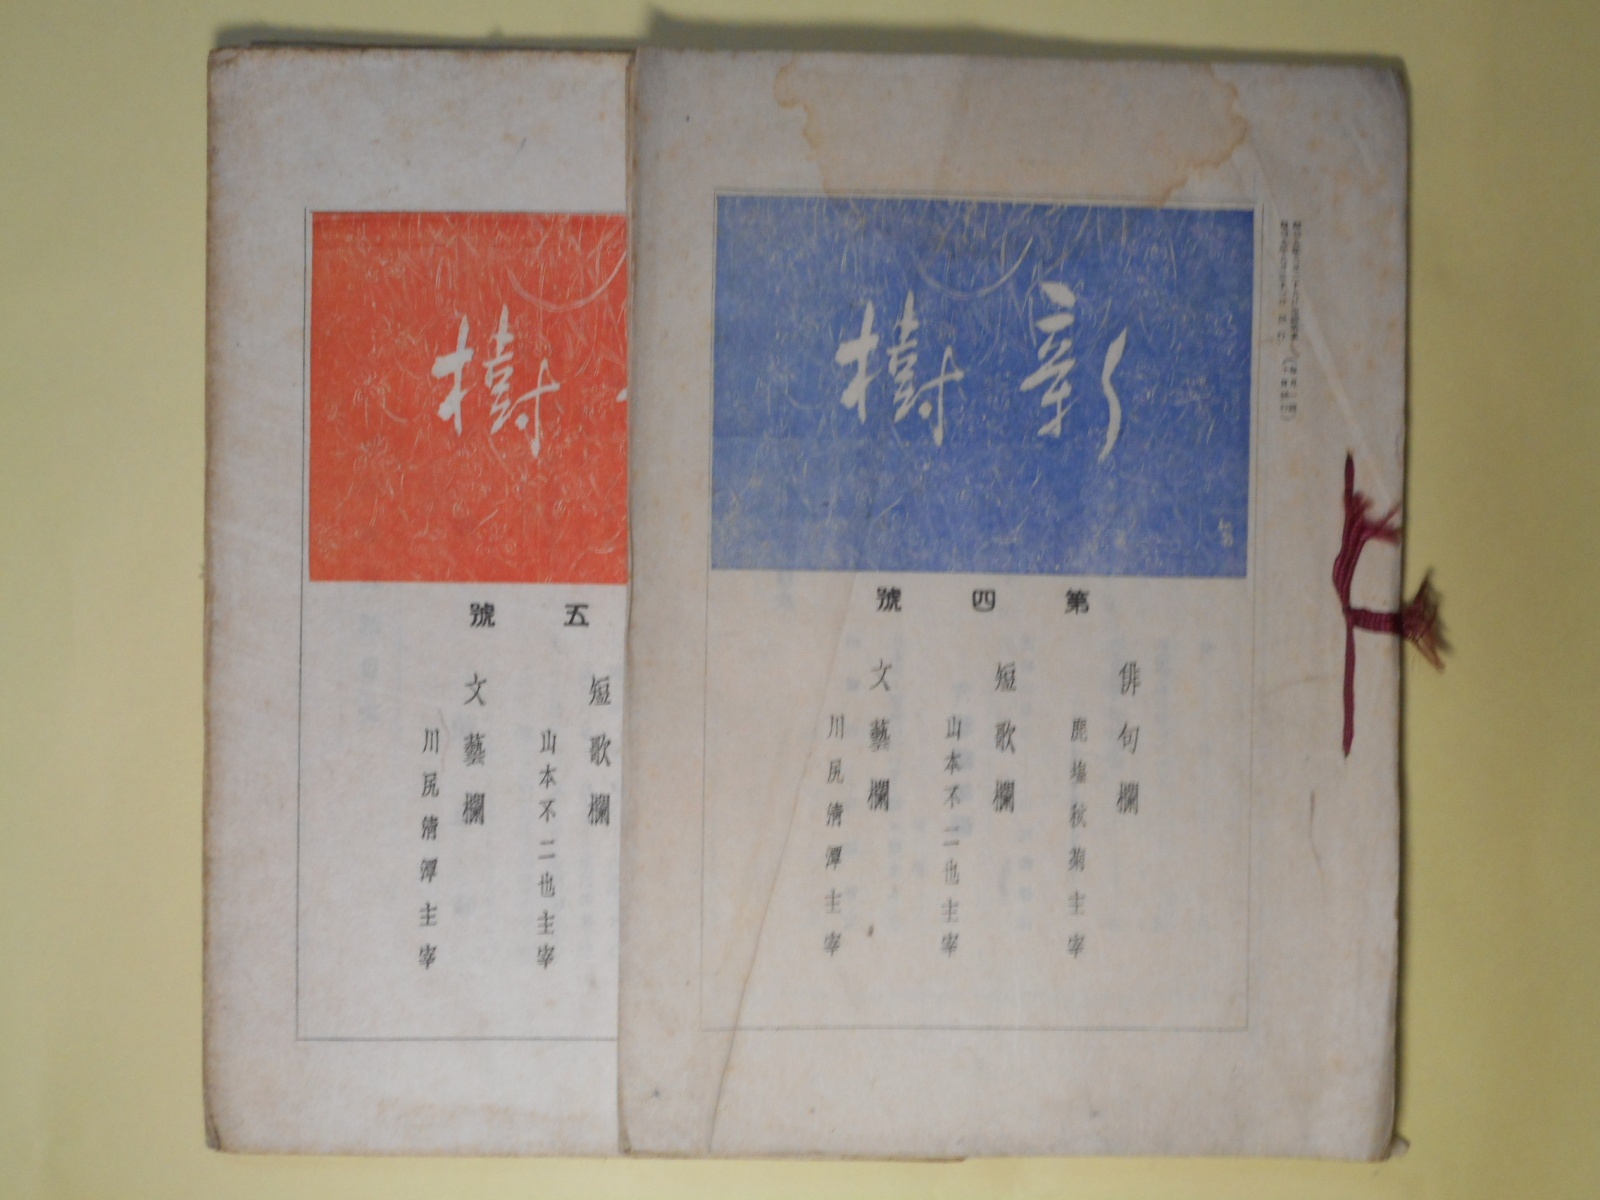 新樹
第四號
俳句欄
鹿塩秋菊主宰
短歌欄
山本不二也主宰
文藝欄
川尻清潭主宰
樹
五號
短歌欄
山本不二也主宰
文藝欄
川尻清潭主宰